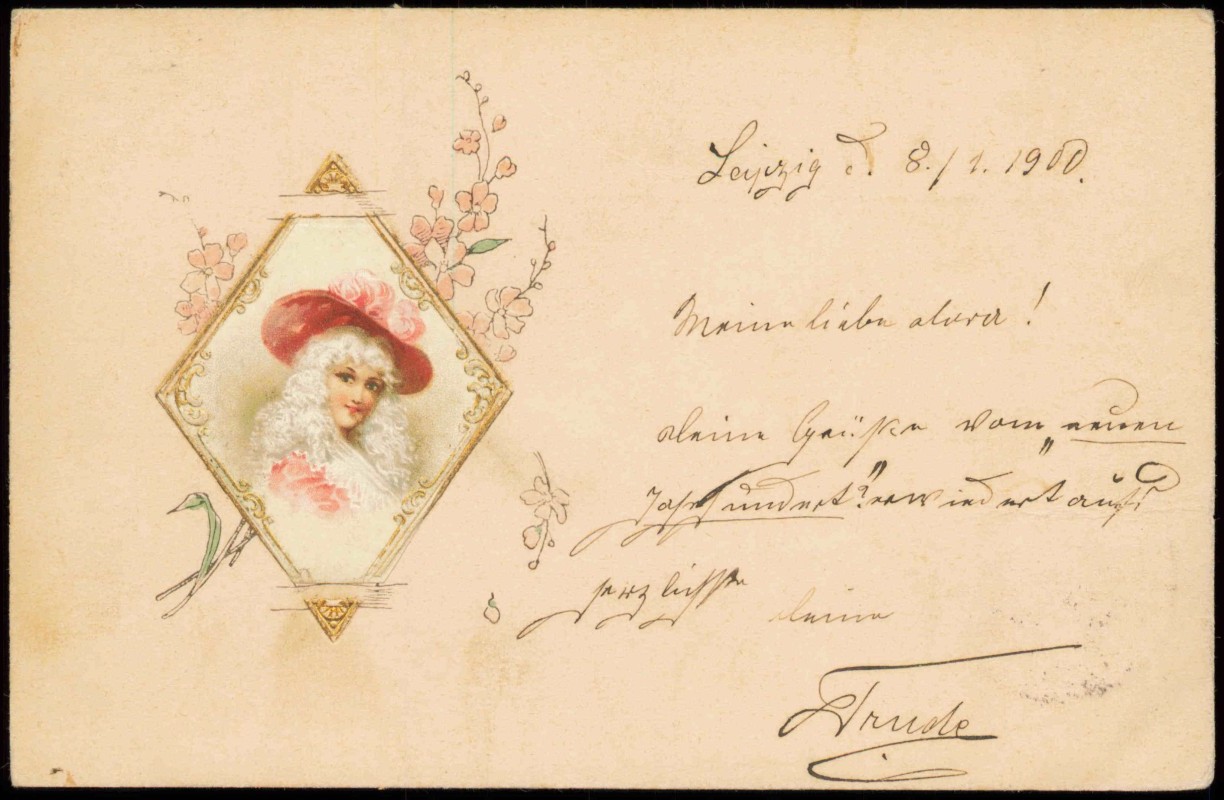 Leipzig d. 8./1. 1900.
Meine liebe Dora!
Deine Grüße vom „neuen
Jahrhundert“ erwiedert aufs
herzlichste Deine
Trude